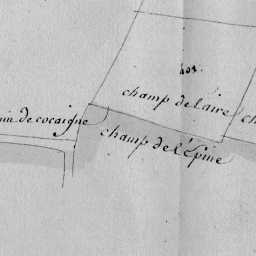 401.
champ de laire
de cocaigne
champ de l'Epine